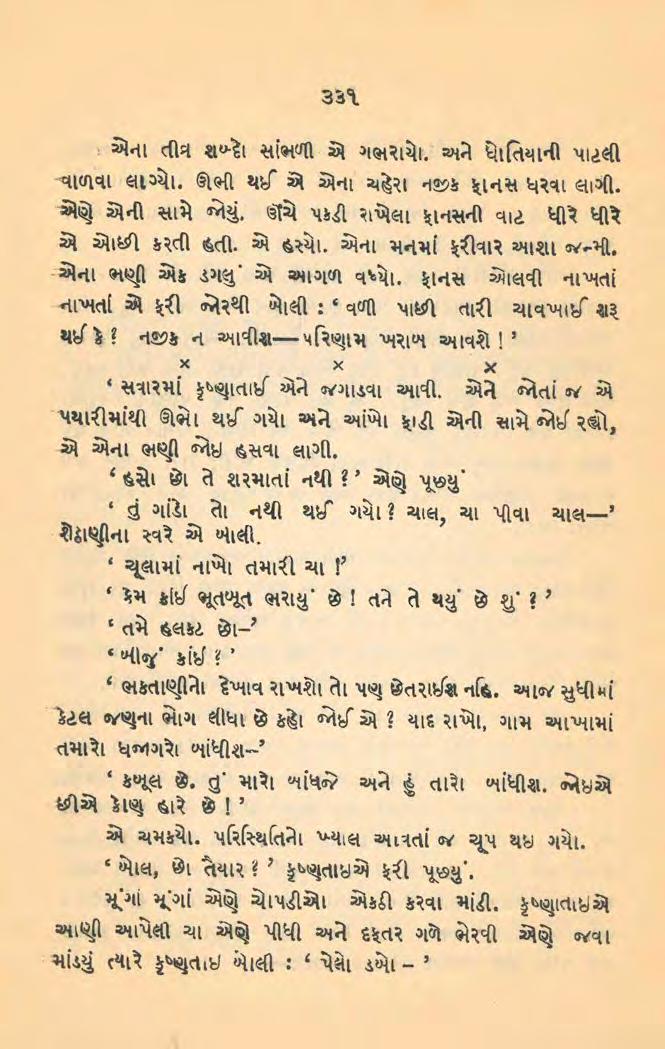 ૩૩૧
એના તીવ્ર શબ્દો સાંભળી એ ગભરાયો. અને ધોતિયાની પાટલી
વાળવા લાગ્યો. ઊભી થઈ એ એના ચહેરા નજીક ફાનસ ધરવા લાગી.
એણે એની સામે જોયું. ઊંચે પકડી રાખેલા ફાનસની વાટ ધીરે ધીરે
એ ઓછી કરતી હતી. એ હસ્યો. એના મનમાં ફરીવાર આશા જન્મી.
એના ભણી એક ડગલું એ આગળ વધ્યો. ફાનસ ઓલવી નાખતાં
નાખતાં એ ફરી જોરથી બોલી : ‘ વળી પાછી તારી ચાવખાઈ શરૂ
થઈ કે ? નજીક ન આવીશ—પરિણામ ખરાબ આવશે ! ’
× × ×
‘ સવારમાં કૃષ્ણાતાઈ એને જગાડવા આવી. એને જોતાં જ એ
પથારીમાંથી ઊભો થઈ ગયો અને આંખો ફાડી એની સામે જોઈ રહ્યો,
એ એના ભણી જોઇ હસવા લાગી.
‘ હસો છો તે શરમાતાં નથી ? ’ એણે પૂછયું
‘ તું ગાંડો તો નથી થઈ ગયો ? ચાલ, ચા પીવા ચાલ—’
શેઠાણીના સ્વરે એ બાલી.
‘ ચૂલામાં નાખો તમારી ચા !’
‘ કેમ કાંઈ ભૂતબૂત ભરાયું છે ! તને તે થયું છે શું ? ’
‘ તમે હલકટ છો–’
‘ બીજું કાંઈ ? ’
‘ ભકતાણીનો દેખાવ રાખશો તો પણ છેતરાઈશ નહિ. આજ સુધીમાં
કેટલ જણના ભોગ લીધા છે કહો જોઈ એ ? યાદ રાખો, ગામ આખામાં
તમારો ધજાગરો બાંધીશ–’
‘ કબૂલ છે. તું મારો બાંધજે અને હું તારો બાંધીશ. જોઇએ
છીએ કોણ હારે છે ! ’
એ ચમકયો. પરિસ્થિતિનો ખ્યાલ આવતાં જ ચૂપ થઇ ગયો.
‘ બોલ, છો તૈયાર ? ’ કૃષ્ણાતાઇએ ફરી પૂછયું.
મૂંગાં મૂંગાં એણે ચોપડીઓ એકઠી કરવા માંઠી. કૃષ્ણાતાઇએ
આણી આપેલી ચા એણે પીધી અને દફતર ગળે ભેરવી એણે જવા
માંડયું ત્યારે કૃષ્ણાતાઇ બોલી : ‘ પેલો ડબો – ’